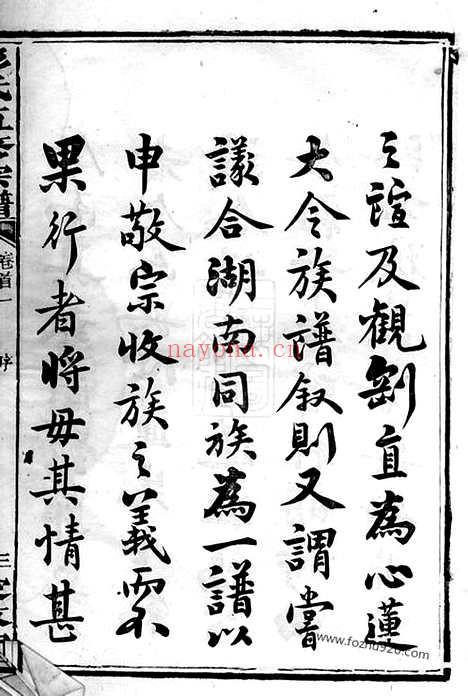 之誼及觀劍直為心蓮
大令族譜叙則又謂嘗
議合湖南同族為一譜以
申敬宗收族之義而不
果行者將毋其情甚
氏五修宗譜
卷首一
序
三
nayona.cn
www.fozhu920.com